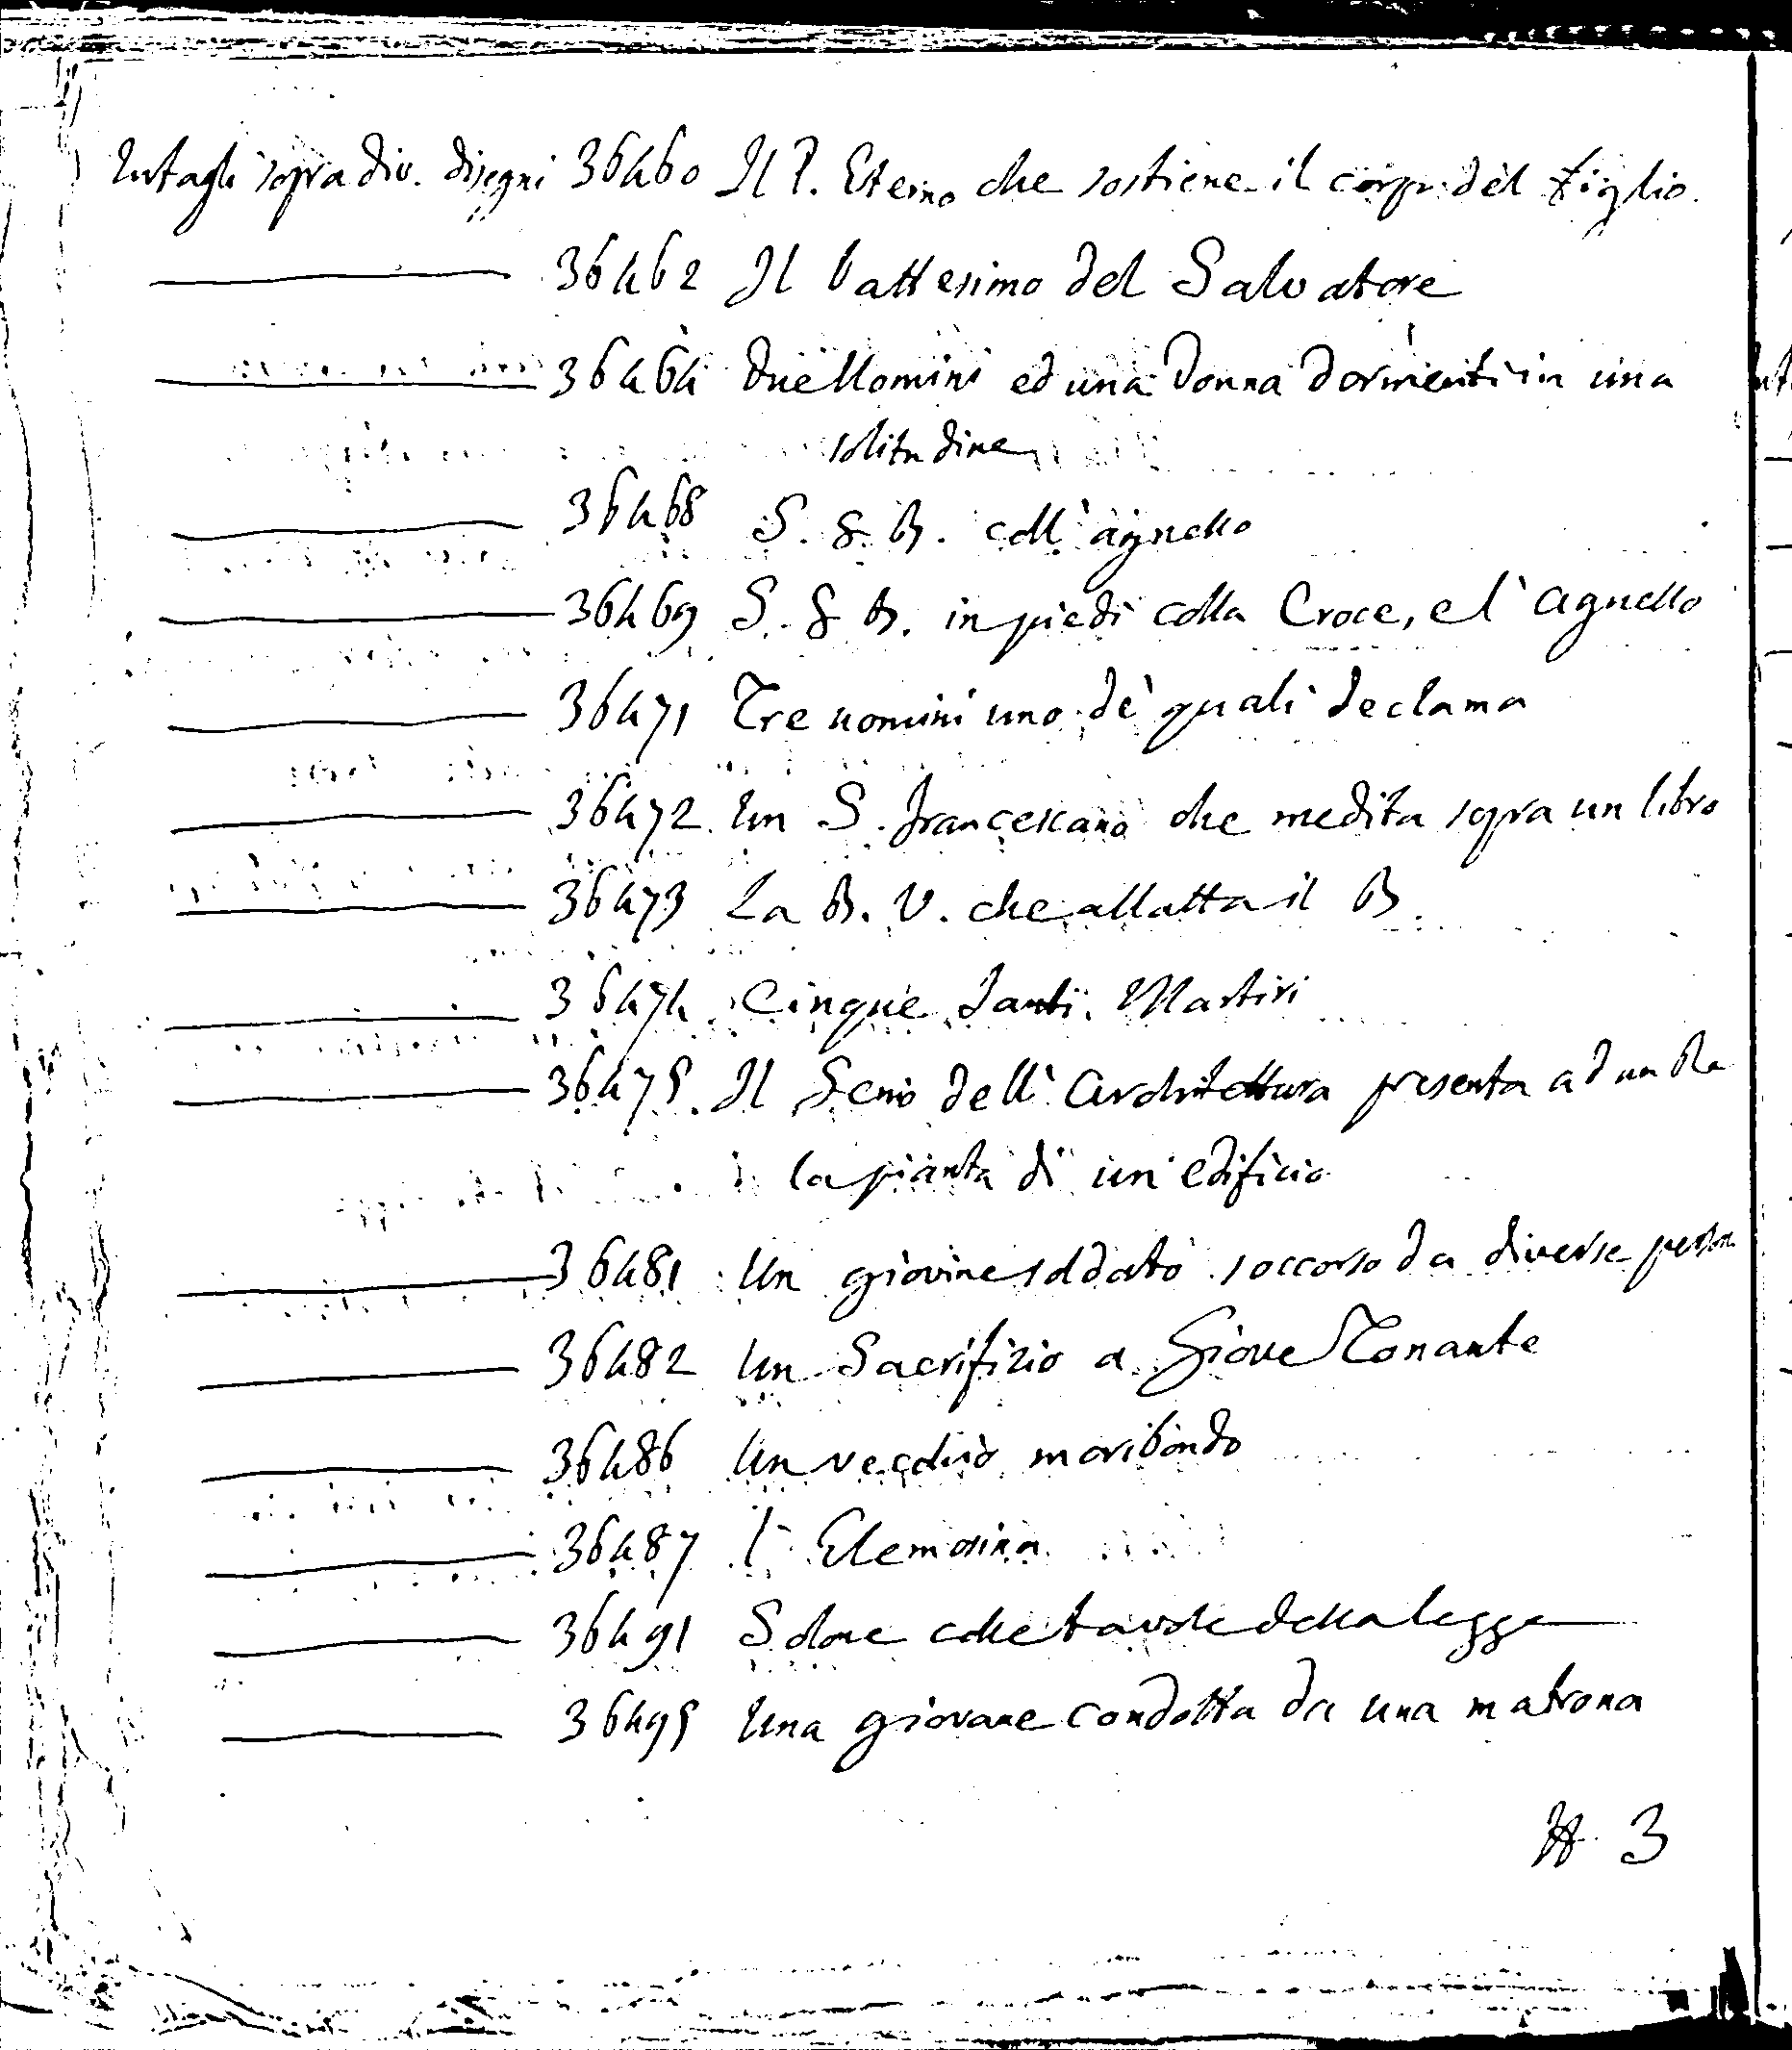 Intagli sopra div. disegni 36460 Il P. Eterno che sostiene il corpo del figlio.
36462 Il battesimo del Salvatore
36464 due Uomini ed una donna dormienti in una
solitudine
36468 S. G. B. coll'agnello
36469 S. G. B. in piedi colla Croce, e l'agnello
36471 Tre uomini uno de' quali declama
36472 Un S. francescano che medita sopra un libro
36473 La B. V. che allatta il B.
36474 Cinque Santi Martiri
36475 Il Genio dell'Architettura presenta ad un Re
la pianta di un edificio
36481 Un giovine soldato soccorso da diverse person
36482 Un Sacrifizio a Giove Tonante
36486 Un vecchio moribondo
36487 l'Elemosina
36491 Solone colle tavole della legge
36495 Una giovane condotta da una matrona
3